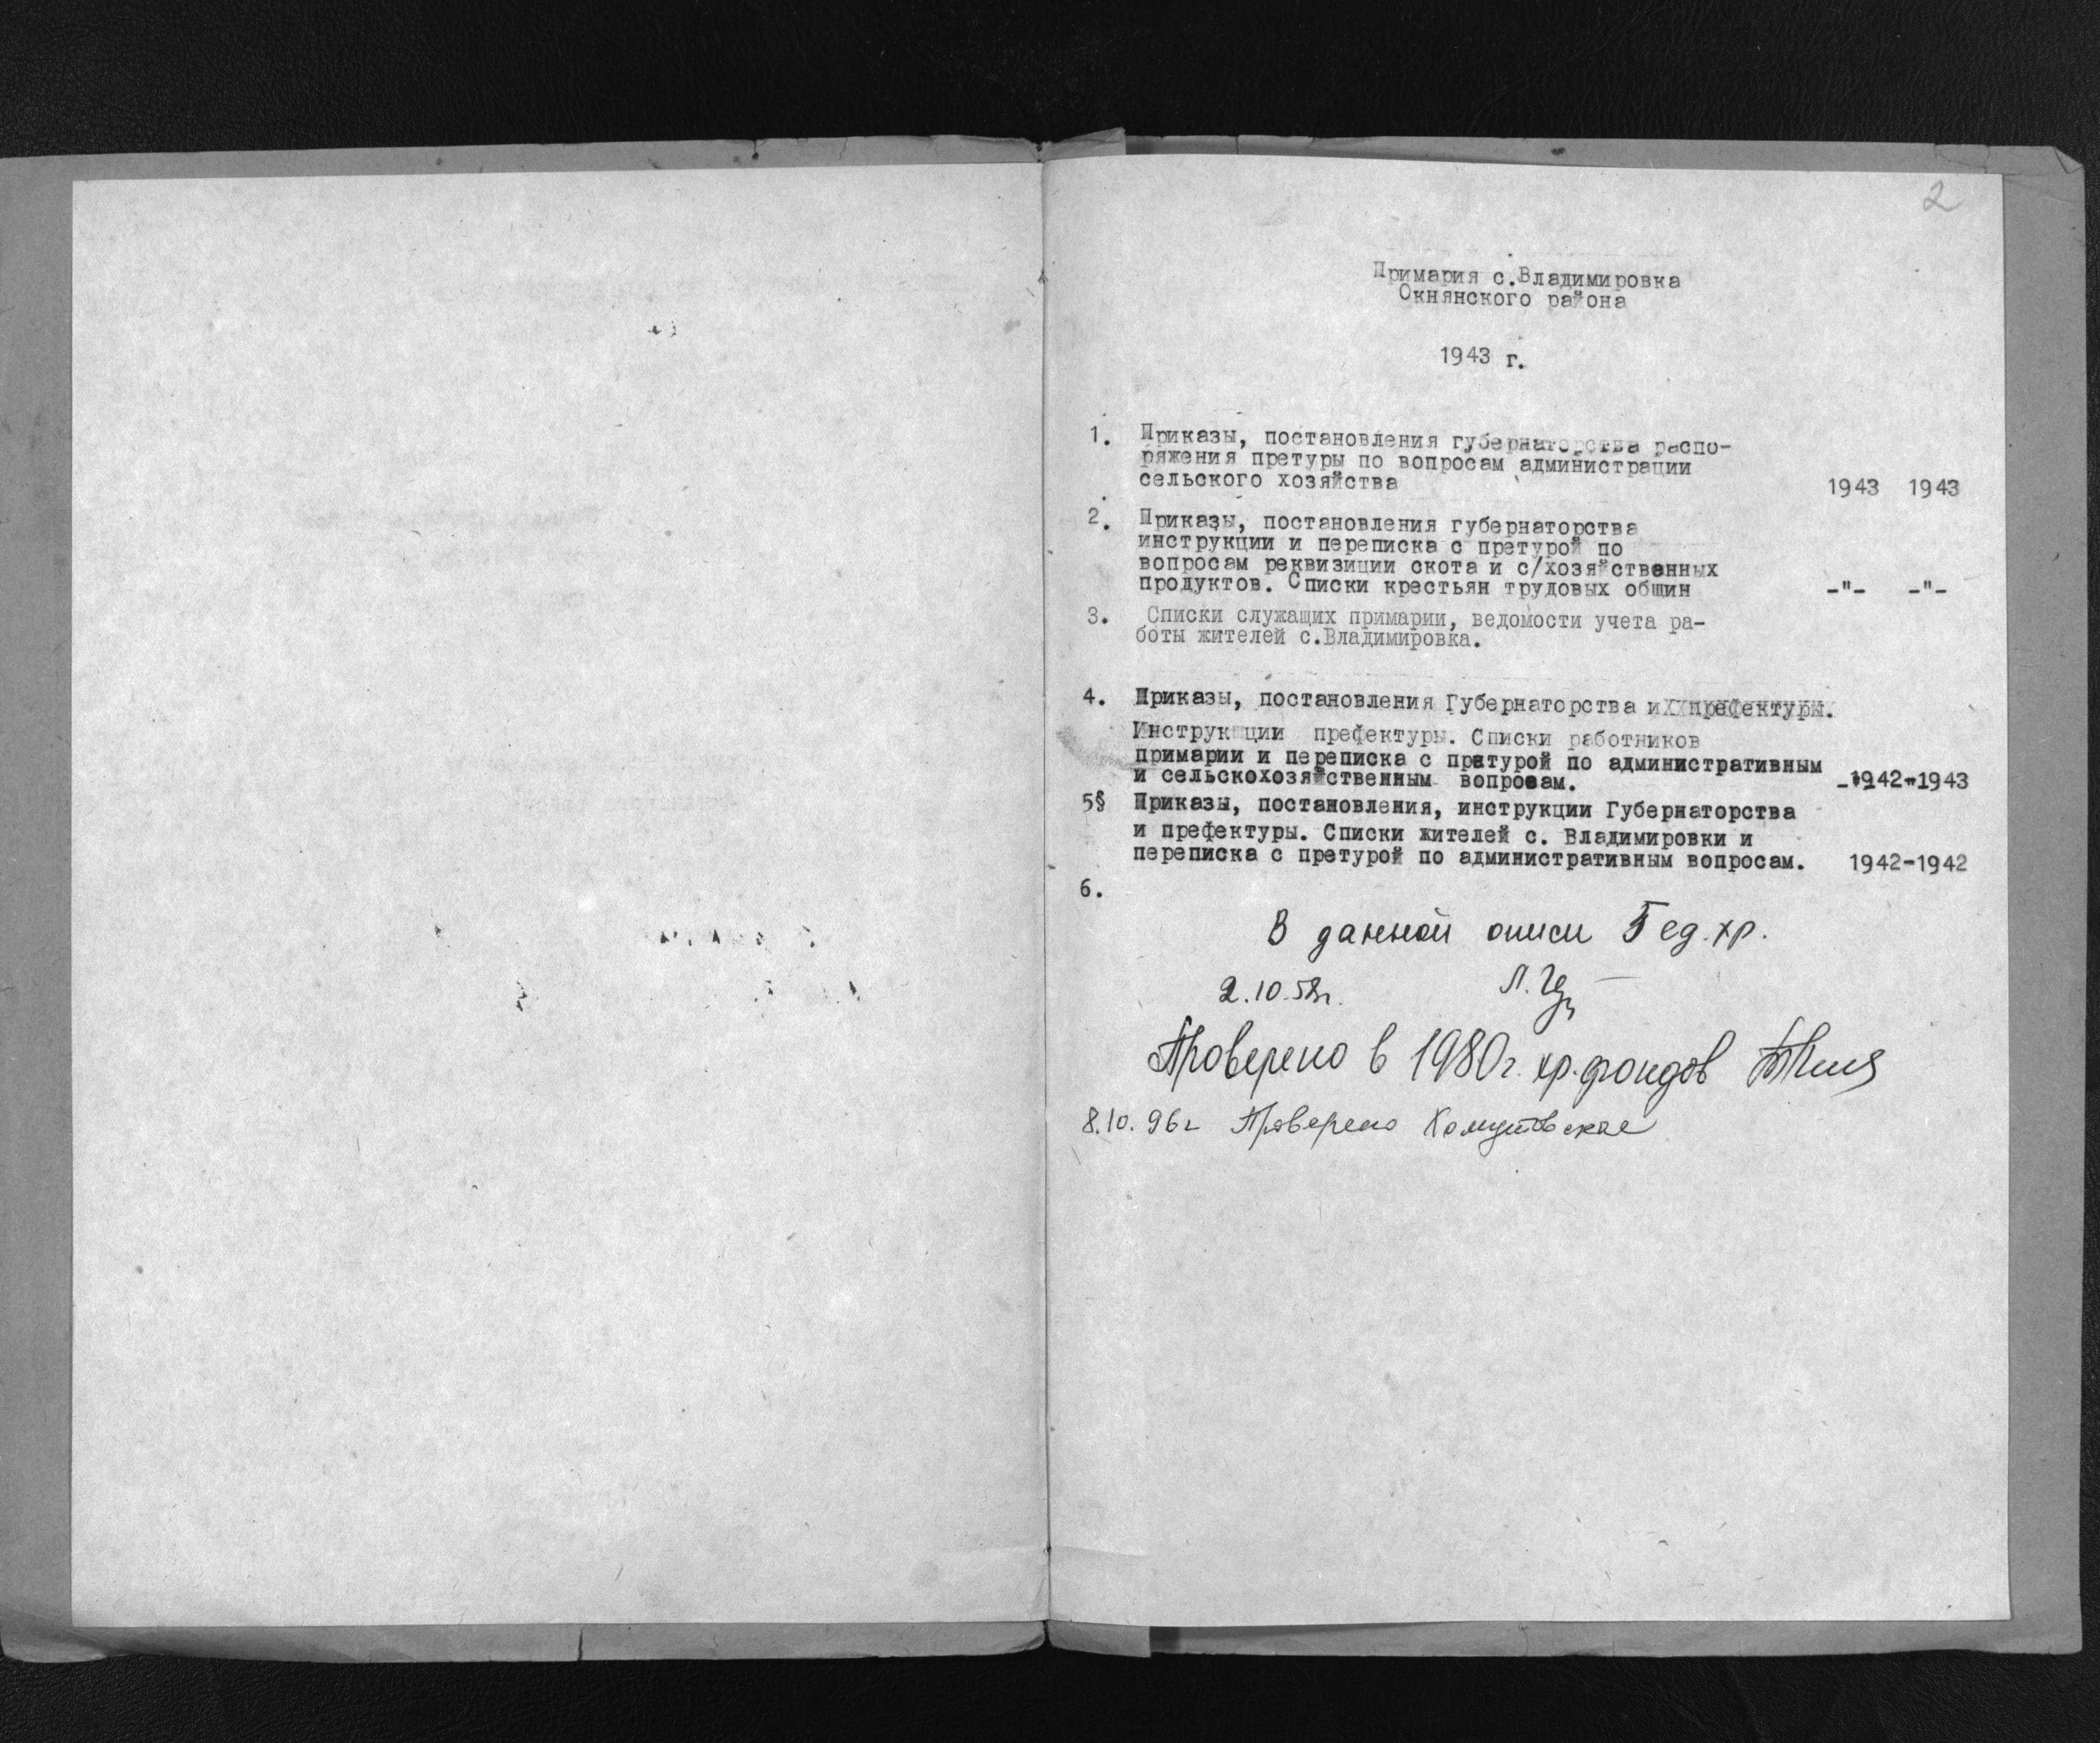 2
Примария с.Владимировка
Окнянского района
1943 г.
1. Приказы, постановления губернаторства распо-
ряжения претуры по вопросам администрации
сельского хозяйства 1943 1943
2. Приказы, постановления губернаторства
инструкции и переписка с претурой по
вопросам реквизиции скота и с/хозяйственных
продуктов. Списки крестьян трудовых общин -"- -"-
3. Списки служащих примарии, ведомости учета ра-
боты жителей с.Владимировка.
4. Приказы, постановления Губернаторства и префектуры.
Инструкции префектуры. Списки работников
примарии и переписка с претурой по административным
и сельскохозяйственным вопросам. 1942-1943
5§ Приказы, постановления, инструкции Губернаторства
и префектуры. Списки жителей с. Владимировки и
переписка с претурой по административным вопросам. 1942-1942
6.
В данной описи 5 ед.хр.
2.10.58г.
Проверено в 1980г. хр.фондов
8.10.96г Проверено